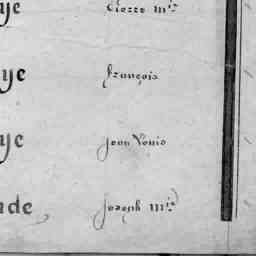 ye Pierre M.ie
ye françois
ye jean Louis
nde joseph M.ie